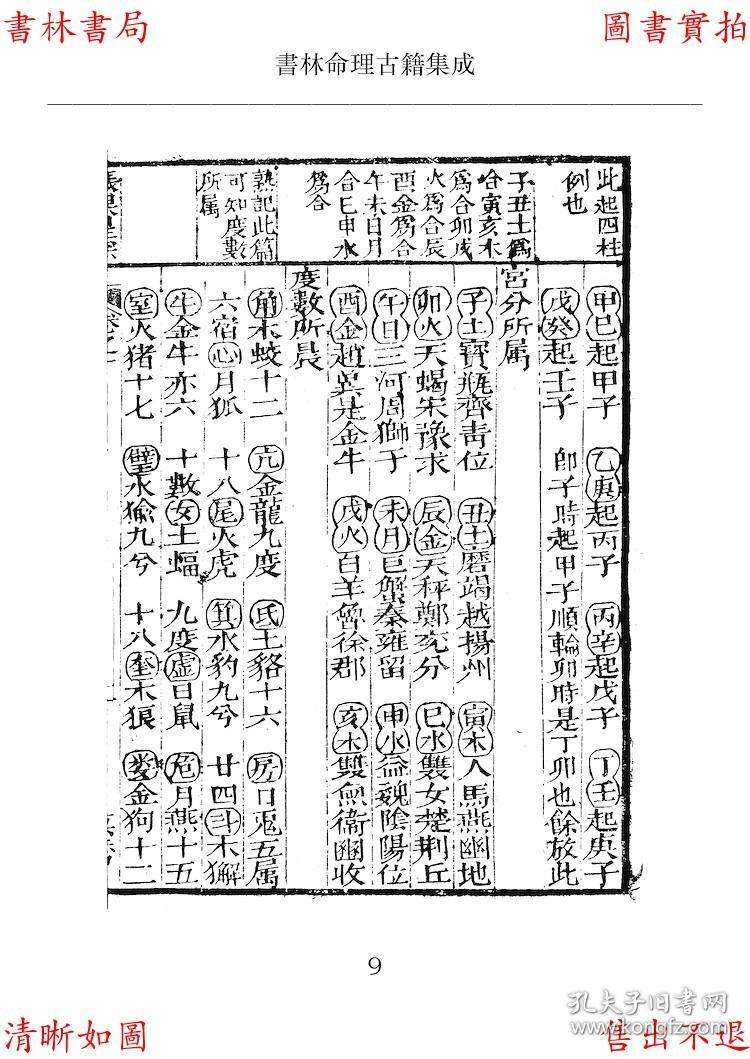 書林書局
圖書實拍
書林命理古籍集成
此起四柱
例也
子丑土爲
合寅亥木
爲合卯戌
火爲合辰
酉金爲合
午未日月
合巳申水
爲合
熟記此篇
可知度數
所属
甲己起甲子 乙庚起丙子 丙辛起戊子 丁壬起庚子
戊癸起壬子 即子時起甲子順輪卯時是丁卯也餘放此
宮分所属
子土寶瓶齊青位 丑土磨竭越揚州 寅木人馬燕幽地
卯火天蝎宋豫求 辰金天秤鄭兖分 巳水雙女楚荆丘
午日三河周獅子 未月巨蟹秦雍留 申水益魏陰陽位
酉金趙冀是金牛 戌火白羊魯徐郡 亥木雙魚衞豳收
度數所晨
角木蛟十二 亢金龍九度 氐土貉十六 房日兎五属
六宿心月狐 十八尾火虎 箕水豹九兮 廿四斗木獬
牛金牛亦六 十數女土蝠 九度虚日鼠 危月燕十五
室火猪十七 壁水㺄九兮 十八奎木狼 婁金狗十二
9
清晰如圖
孔夫子旧書网
www.kongfz.com
售出不退